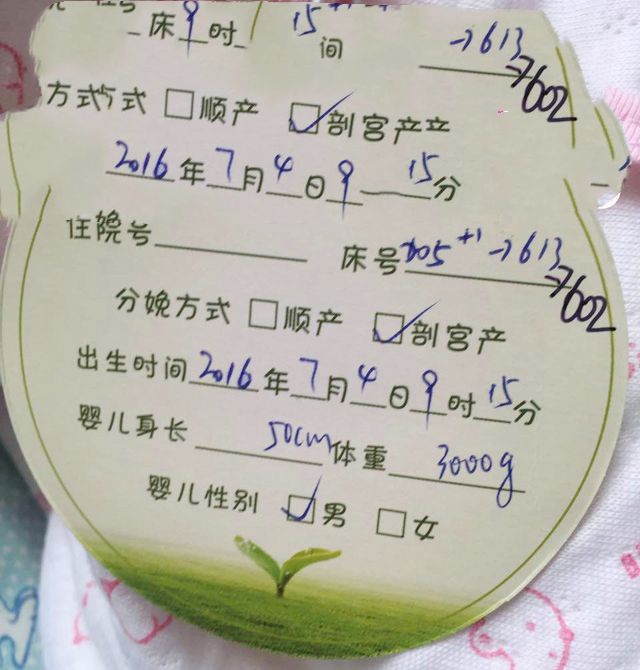 床 9 时 15
间 →613
→602
方式方式 □顺产 ☑剖宫产产
2016年7月4日9 15分
住院号 床号705⁺¹→613
→602
分娩方式 □顺产 ☑剖宫产
出生时间2016年7月4日9时15分
婴儿身长 50cm 体重 3000g
婴儿性别 ☑男 □女